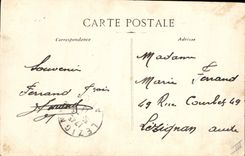 CARTE POSTALE
Correspondance
Adresse
Souvenir
Ferrand
Madame
Marie Ferrand
49 Rue Courbet 49
Lézignan Aude